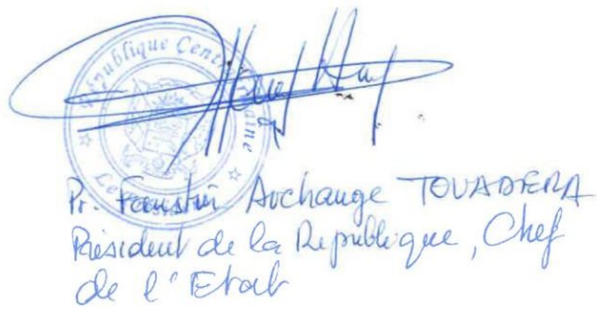 République Centrafricaine
Le
Pr. Faustin Archange TOUADERA
Président de la République, Chef
de l'Etat